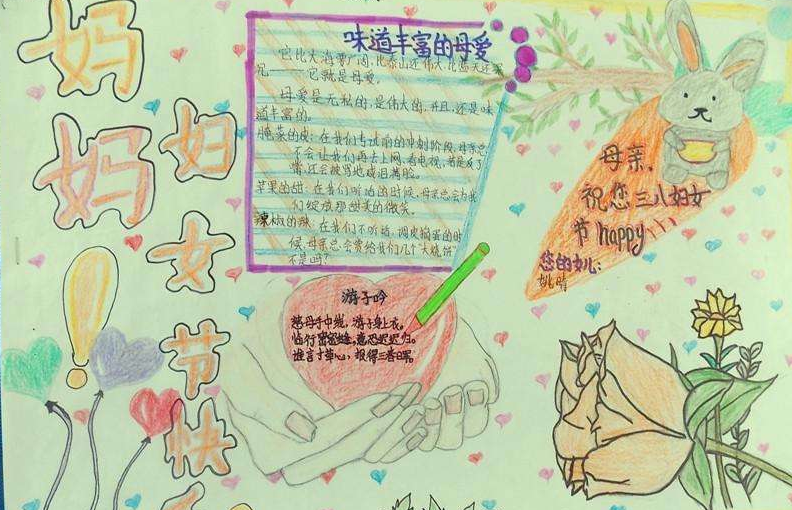 妈
妈
妇
女
节
快
味道丰富的母爱
它比大海要广阔,比泰山还伟大,比蓝天还
它就是母爱。
母爱是无私的,是伟大的,并且,还是味
道丰富的。
在我们考试前的冲刺阶段,母亲总
不会让我们再去上网、看电视,若是反了
苹果的甜:在我们听话的时候,母亲总会为我
们绽放那甜美的微笑。
辣椒的辣:在我们不听话,调皮捣蛋的时
候,母亲总会赏给我们几个“大烧饼”
不是吗?
游子吟
慈母手中线,游子身上衣。
临行密密缝,意恐迟迟归。
谁言寸草心,报得三春晖。
母亲,
祝您三八妇女
节happy
您的女儿:
姚晴